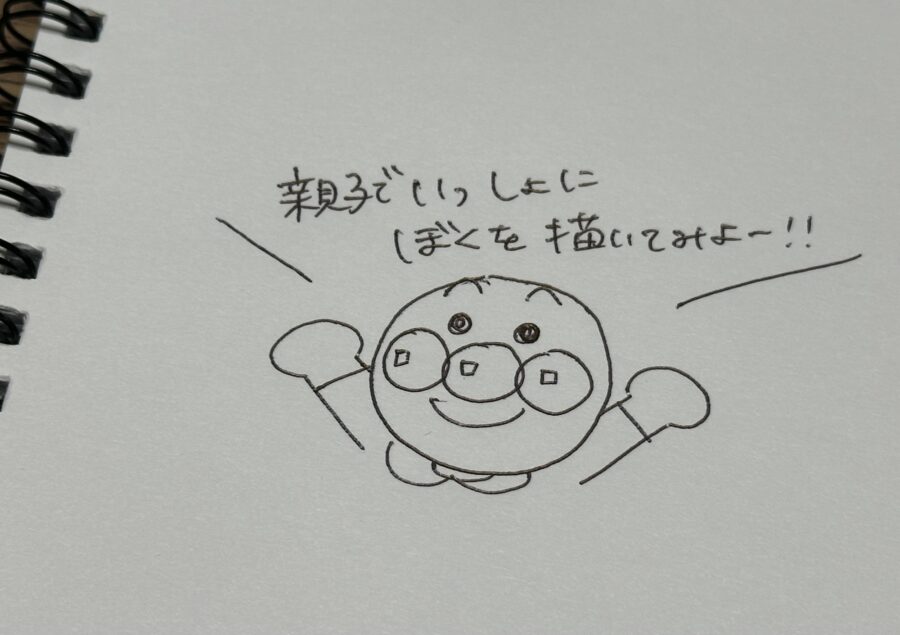 親子でいっしょに
ぼくを描いてみよー!!